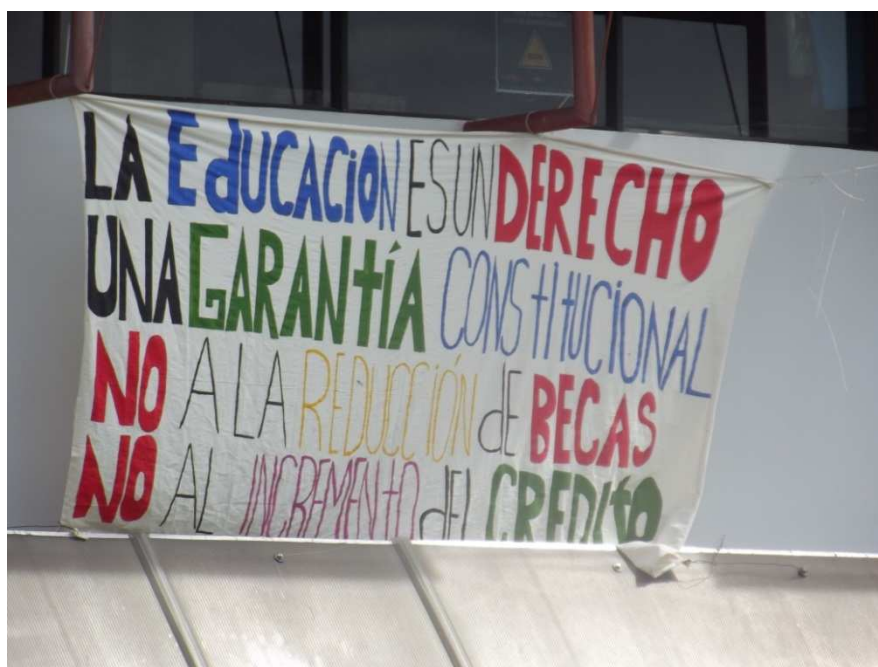 LA EdUCACiON ES UN DERECHO
UNA GARANtíA CONStitUCIONAL
NO A LA REDUCCIÓN dE BECAS
NO AL INCREMENtO dEl CREDito